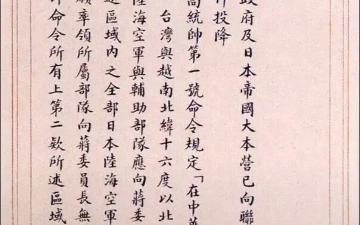 政府及日本帝國大本營已向聯
投降
高統帥第一號命令規定「在中華
台灣與越南北緯十六度以北
陸海空軍與輔助部隊應向蔣委
述區域內之全部日本陸海空軍
願率領所屬部隊向蔣委員長無
命令所有上第二款所述區域